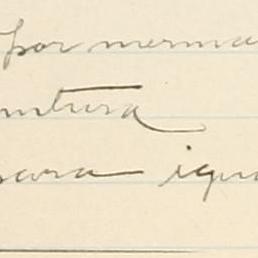 por merma
ntura
para igu